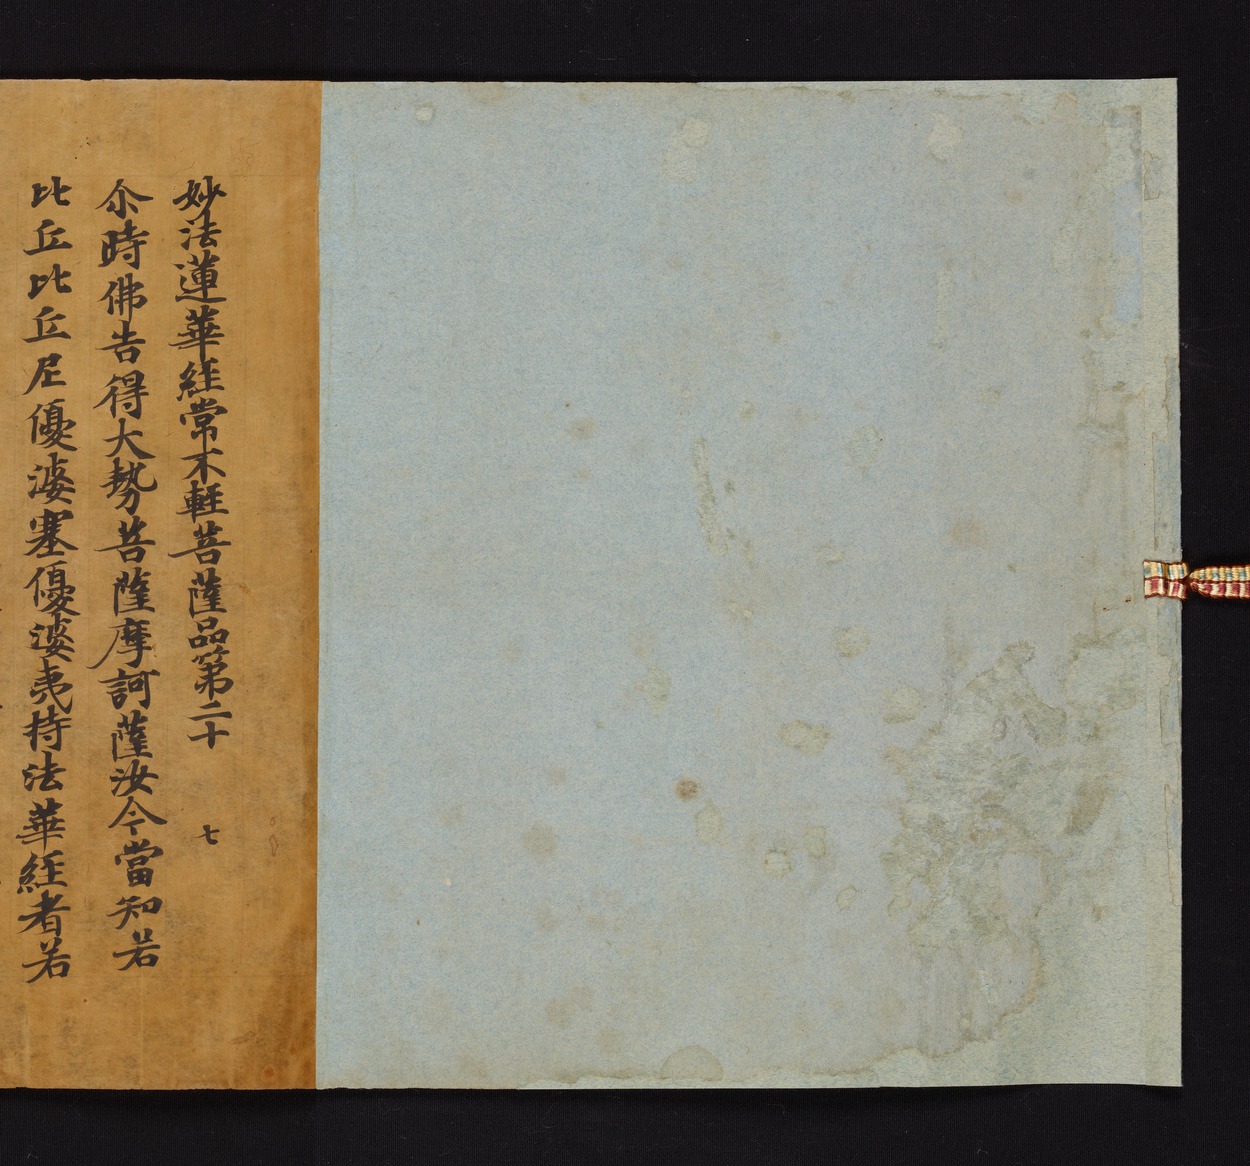 妙法蓮華經常不輕菩薩品第二十 七
尒時佛告得大勢菩薩摩訶薩汝今當知若
比丘比丘尼優婆塞優婆夷持法華經者若